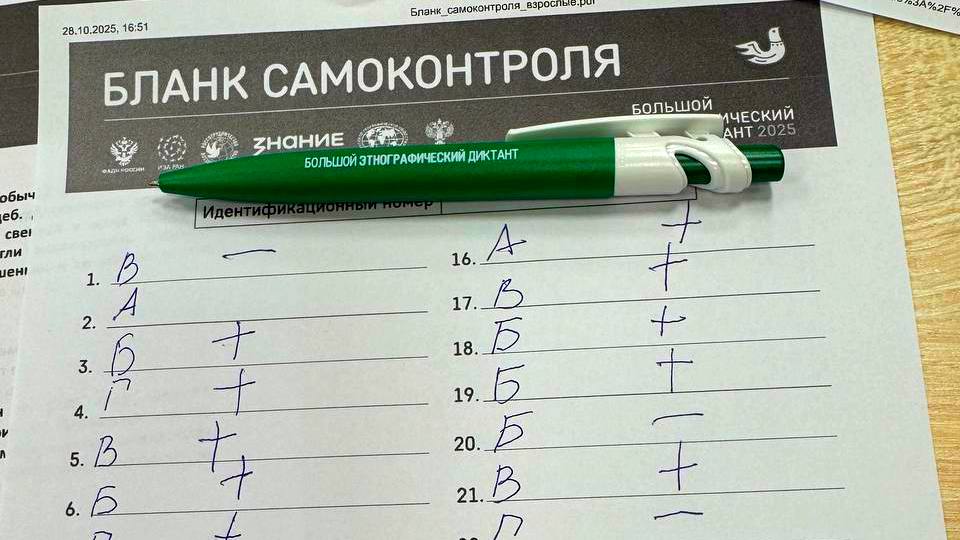 28.10.2025, 16:51
Бланк_самоконтроля_взрослые.pdf
БЛАНК САМОКОНТРОЛЯ
БОЛЬШОЙ
ИЧЕСКИЙ
АНТ 2025
ФАДН РОССИИ
ИЭА РАН
ЗНАНИЕ
БОЛЬШОЙ ЭТНОГРАФИЧЕСКИЙ ДИКТАНТ
Идентификационный номер
1. В —
2. А
3. Б +
4. Г +
5. В +
6. Б +
16. А +
17. В +
18. Б +
19. Б +
20. Б —
21. В +
Г —